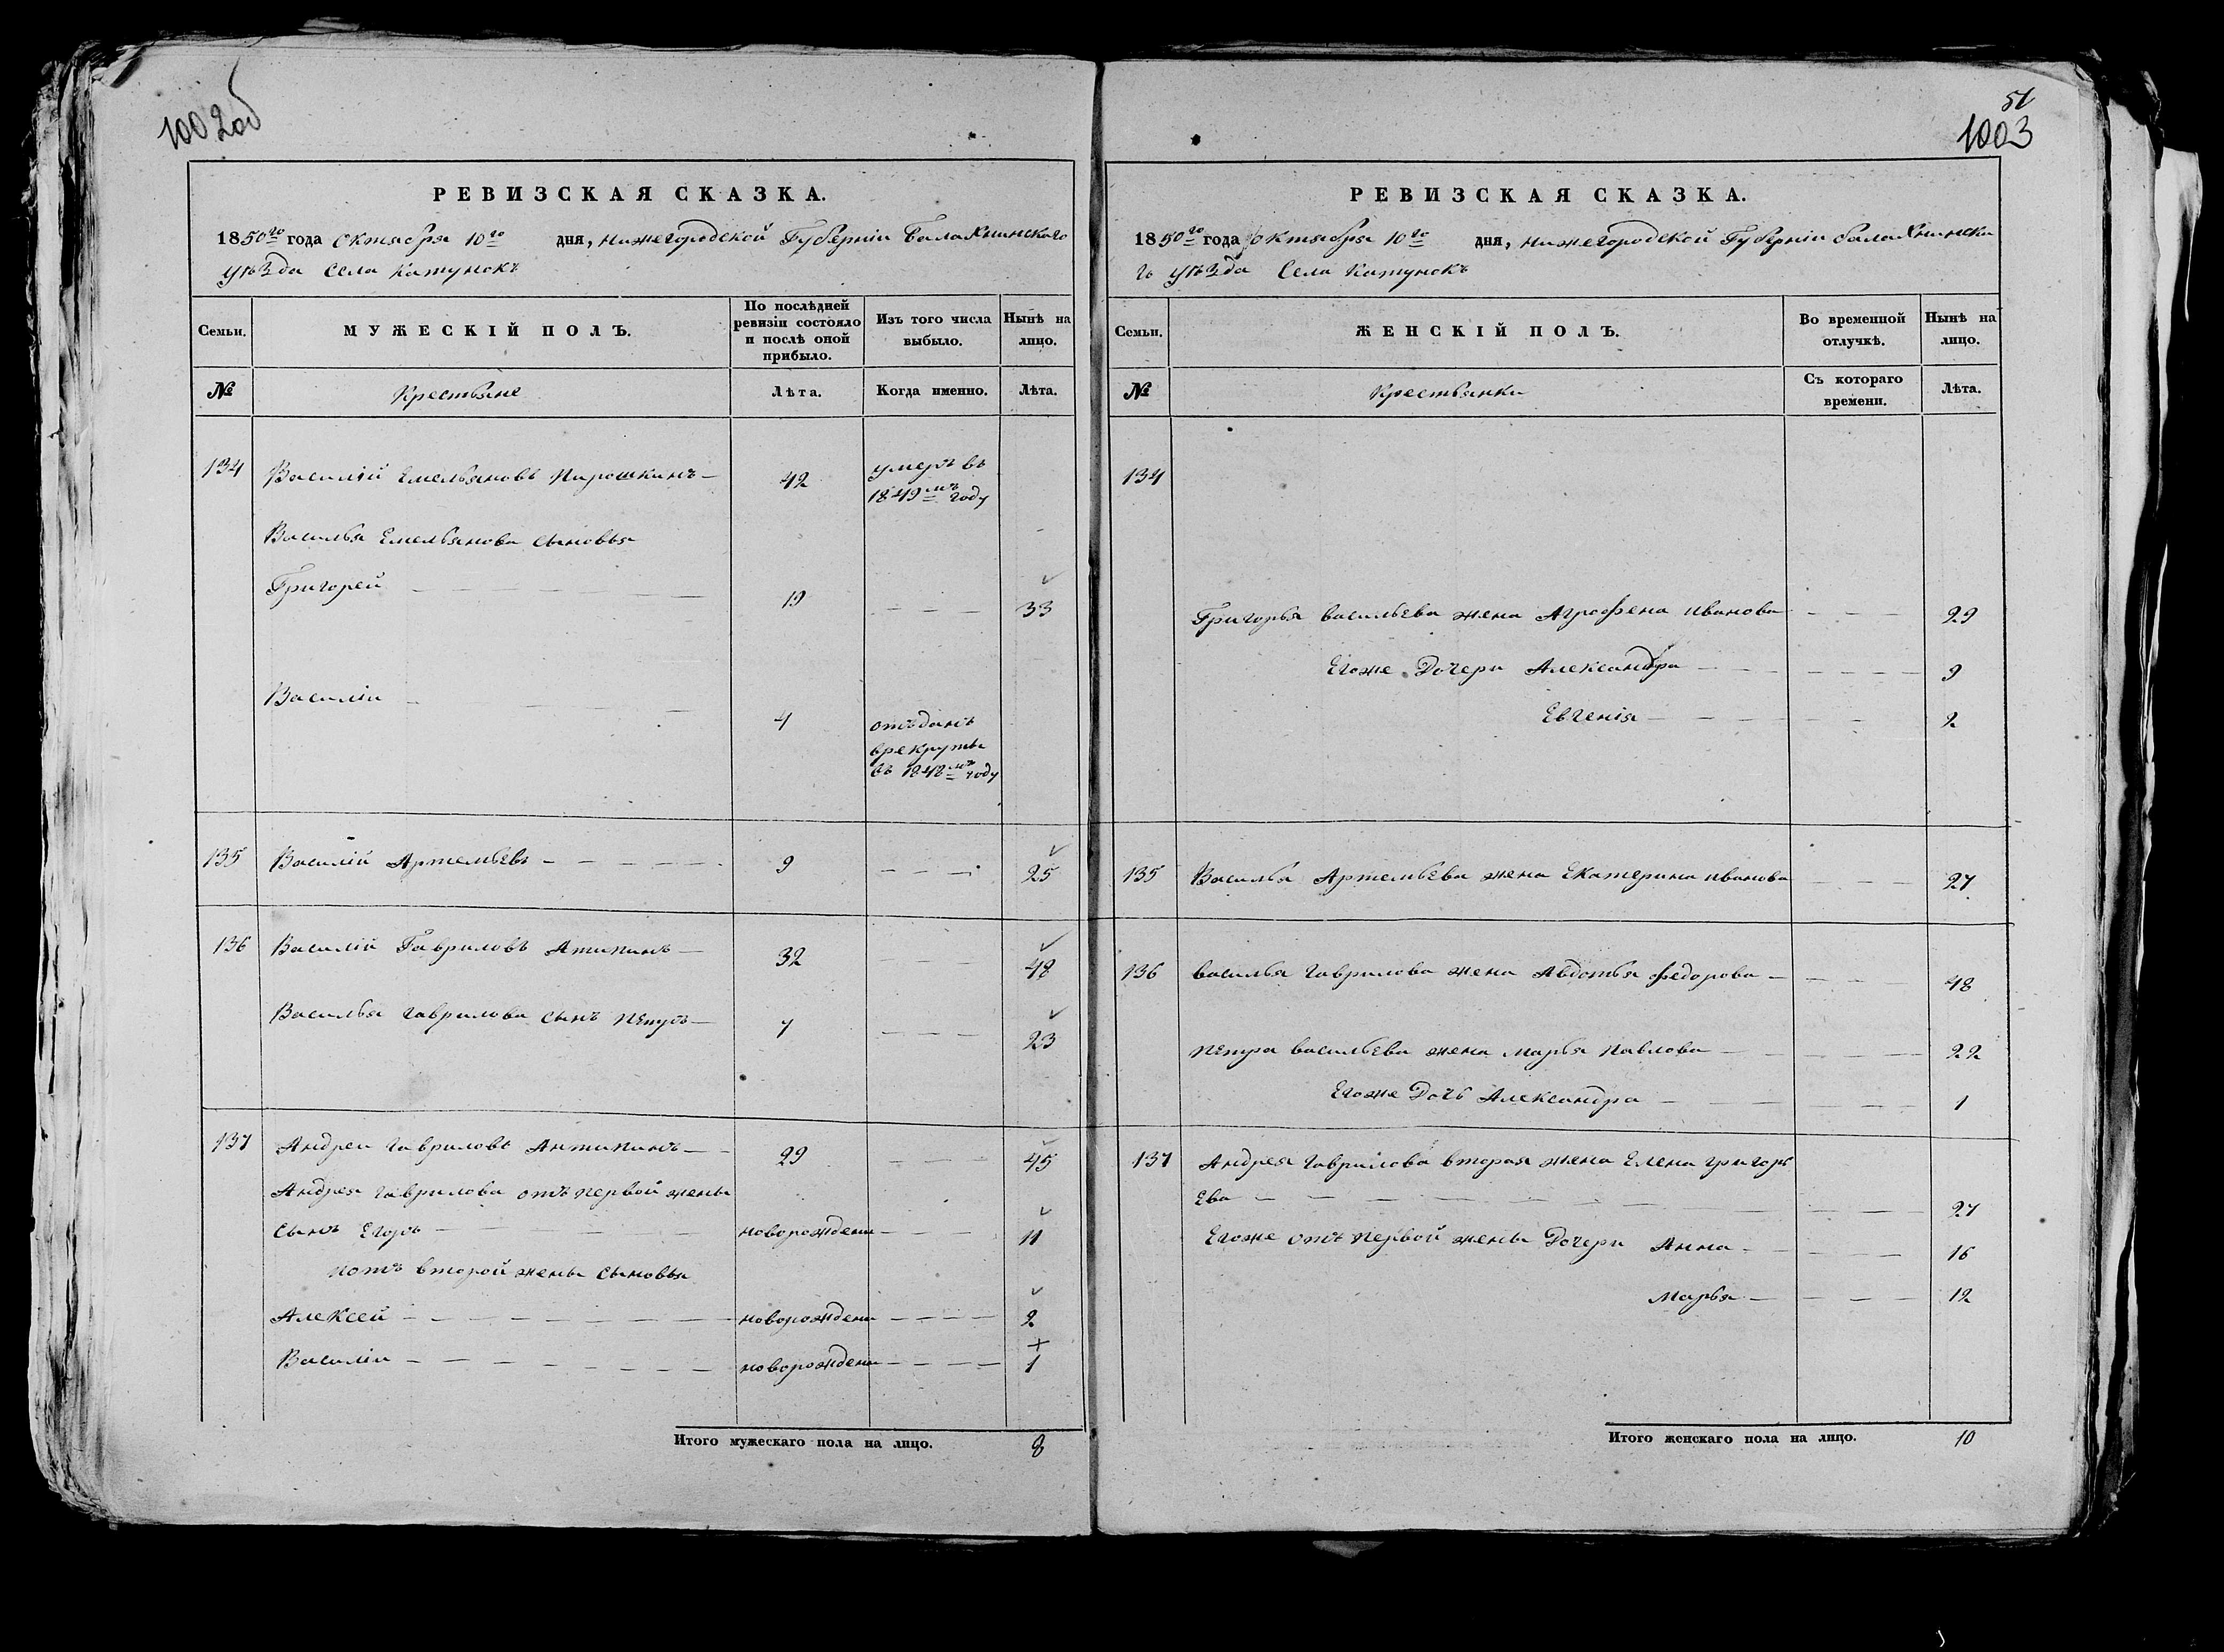 1002об
РЕВИЗСКАЯ СКАЗКА.
1850го года Октября 10го дня, нижегородской Губерніи Балахнинского
уѣзда Села Катунокъ
Семьи.
МУЖЕСКІЙ ПОЛЪ.
По послѣдней ревизіи состояло и послѣ оной прибыло.
Изъ того числа выбыло.
Нынѣ на лицо.
№
Крестьяне
Лѣта.
Когда именно.
Лѣта.
134 Василій Емельяновъ Пирошкинъ 42 умеръ въ
1849мъ году
Василья Емельянова сыновья
Григорей 19 33
Василіи 4 отъданъ
врекруты
въ 1848мъ году
135 Василій Артемьевъ 9 25
136 Василіи Гавриловъ Атипинъ 32 48
Василья Гаврилова сынъ Петръ 7 23
137 Андреи Гавриловъ Антипинъ 29 45
Андрея Гаврилова отъ первой жены
сынъ Егоръ новорожденъ 11
иотъ второй жены сыновья
Алексей новорожденъ 2
Василіи новорожденъ 1
Итого мужескаго пола на лицо. 8
51
1003
РЕВИЗСКАЯ СКАЗКА.
1850го года Октября 10го дня, нижегородской Губерніи балахнинска
го уѣзда Села Катунокъ
Семьи.
ЖЕНСКІЙ ПОЛЪ.
Во временной отлучкѣ.
Нынѣ на лицо.
№
Крестьянки
Съ котораго времени.
Лѣта.
134
Григорья васильева жена Аграфена иванова 29
Егоже Дочери Александра 9
Евгенія 2
135 Василья Артемьева жена Екатерина иванова 27
136 василья гаврилова жена Авдотья федорова 48
петра васильева жена марья павлова 22
Егоже Дочь Александра 1
137 Андрея гаврилова вторая жена Елена григорь
Ева 27
Егоже отъ первой жены Дочери Анна 16
Марья 12
Итого женскаго пола на лицо. 10